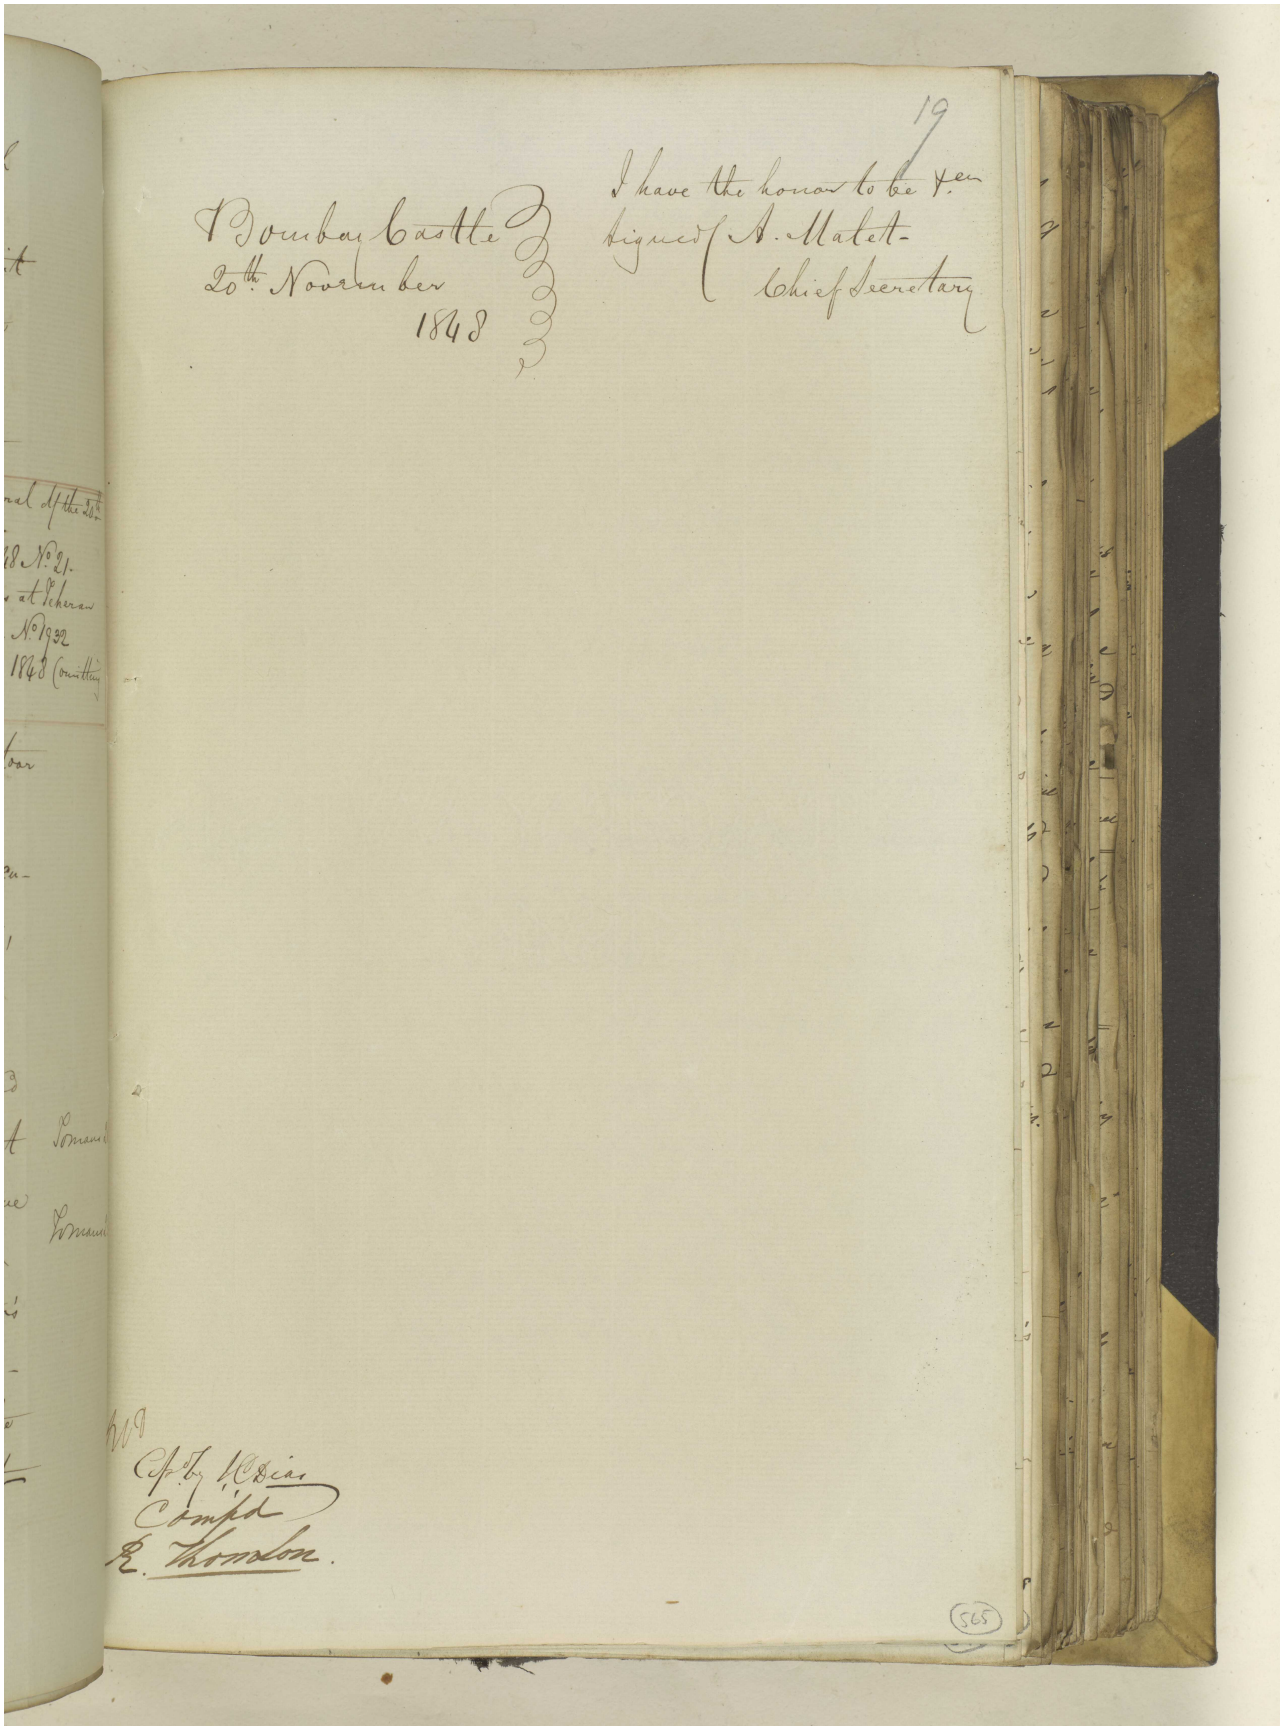 19
I have the honor to be &.ca
Bombay Castle
20th November
1848
Signed A. Malet-
Chief Secretary
ral of the 20th
48 No. 21.
at Teheran
No. 1932
1848 (omitting
Tomans
Tomans
Cop.d by H Dias
Comp'd
R. Thomson.
565